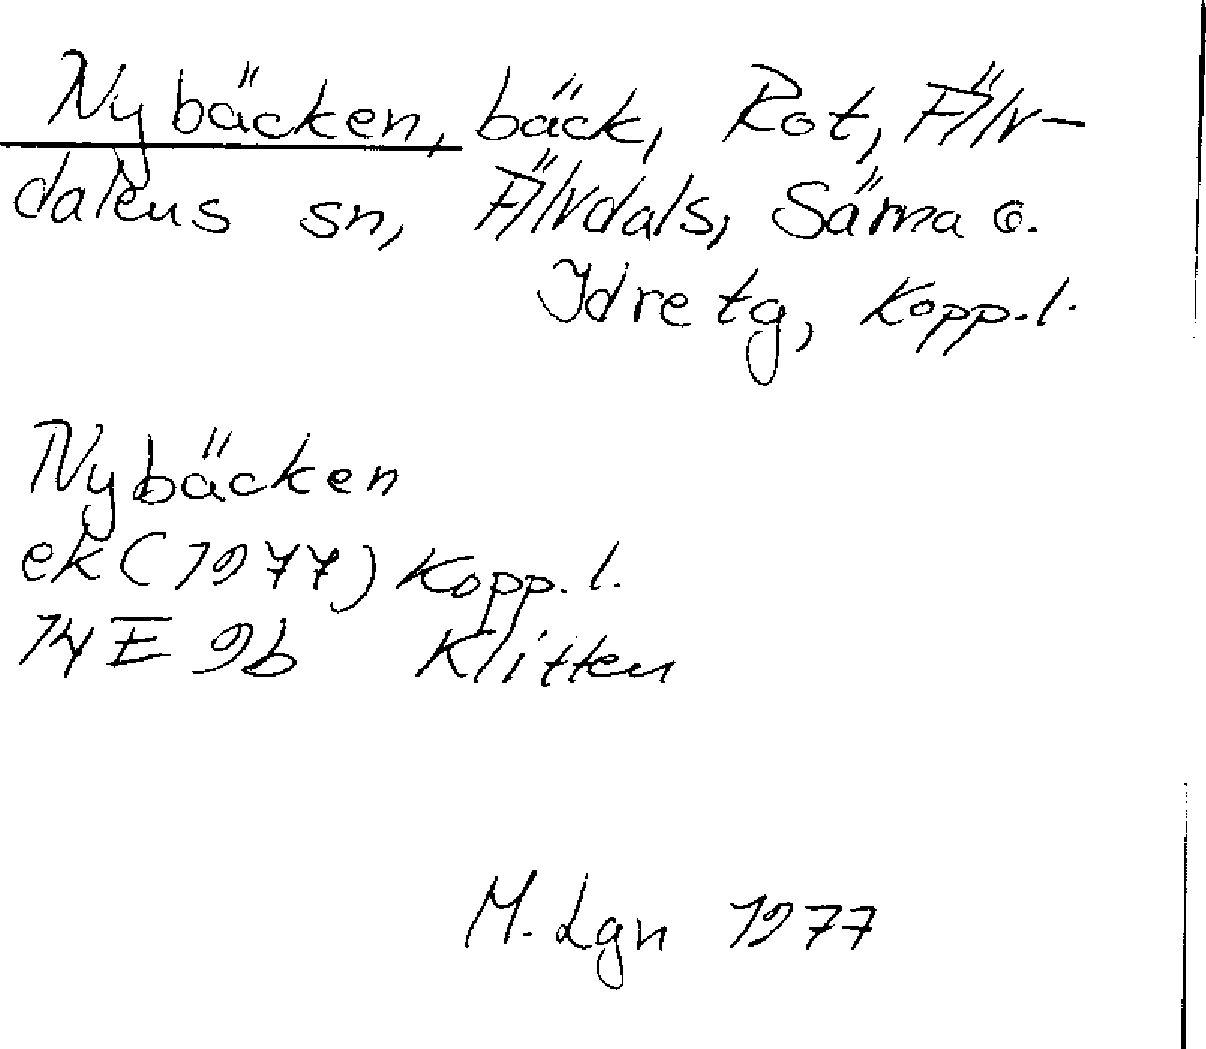 Nybäcken, bäck, Rot, Älv-
dalens sn, Älvdals, Särna o.
Idre tg, Kopp.l.
Nybäcken
ek (1977) Kopp. l.
14 E 9b Klitten
M. Lgn 1977